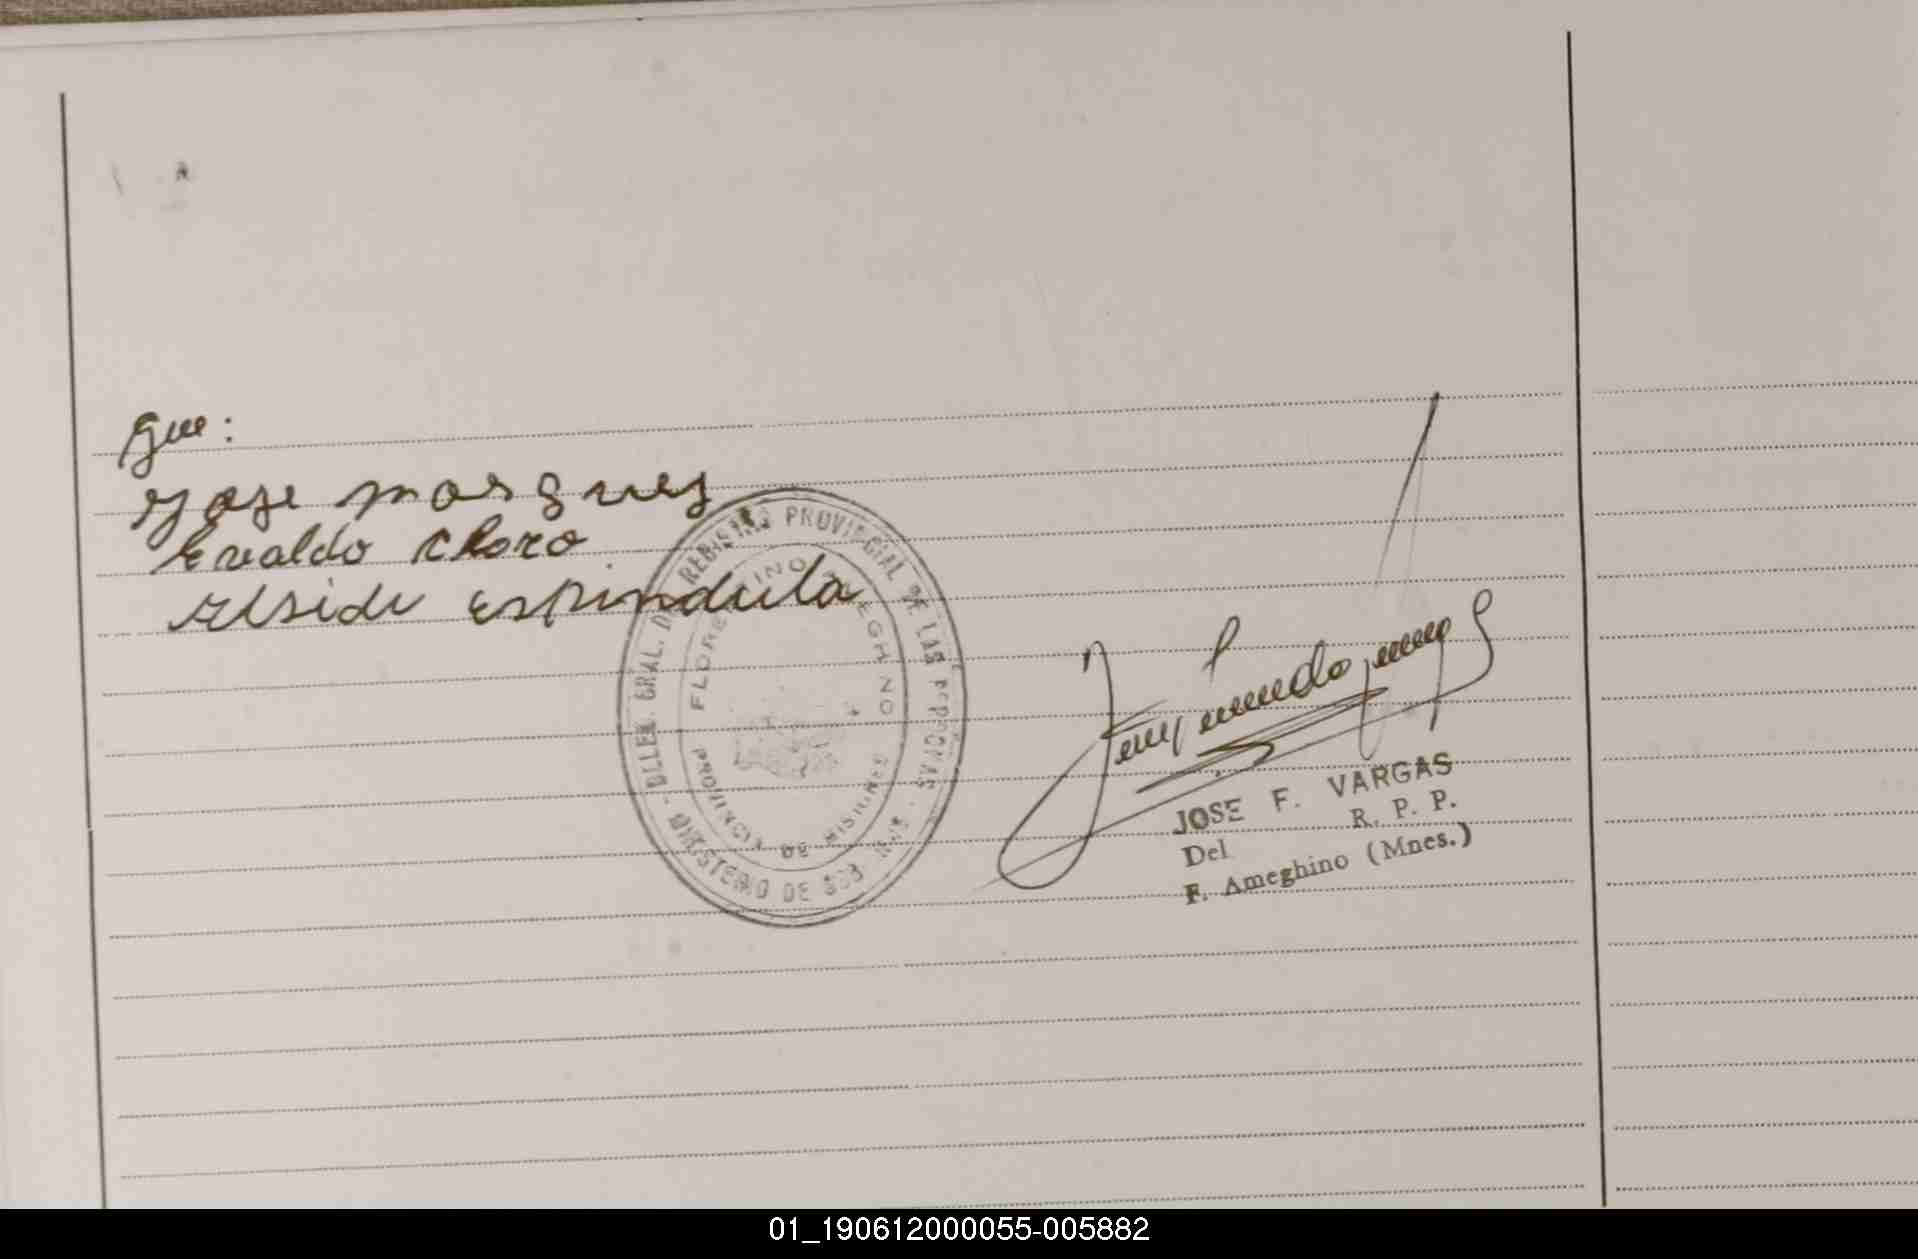 que:
Jose marques
Evaldo Claro
Alsidi espindula
DELEG. GRAL. DE REGISTRO PROVINCIAL DE LAS PERSONAS
MINISTERIO DE GOB
FLORENTINO AMEGHINO
PROVINCIA DE MISIONES
JOSE F. VARGAS
Del R. P. P.
F. Ameghino (Mnes.)
01_190612000055-005882